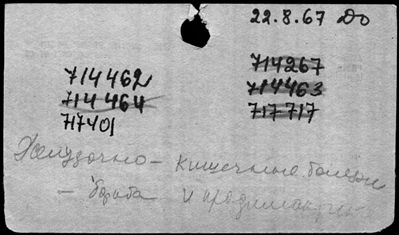 22.8.67 До
714462
714464
717401
714267
714463
717717
Желудочно- кишечные болезни
- борьба и профилактика